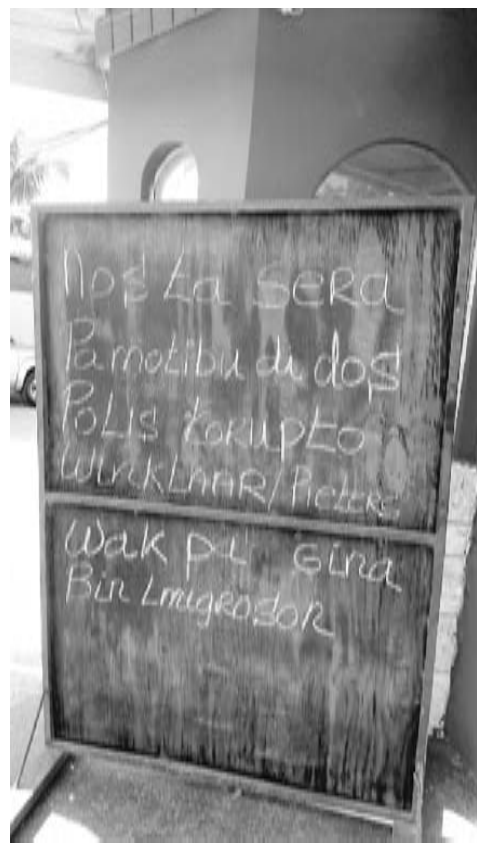 Nos ta sera
Pa motibu di dos
Polis korupto
Winklaar/Pieters
Wak pa Gina
Bin Imigroson